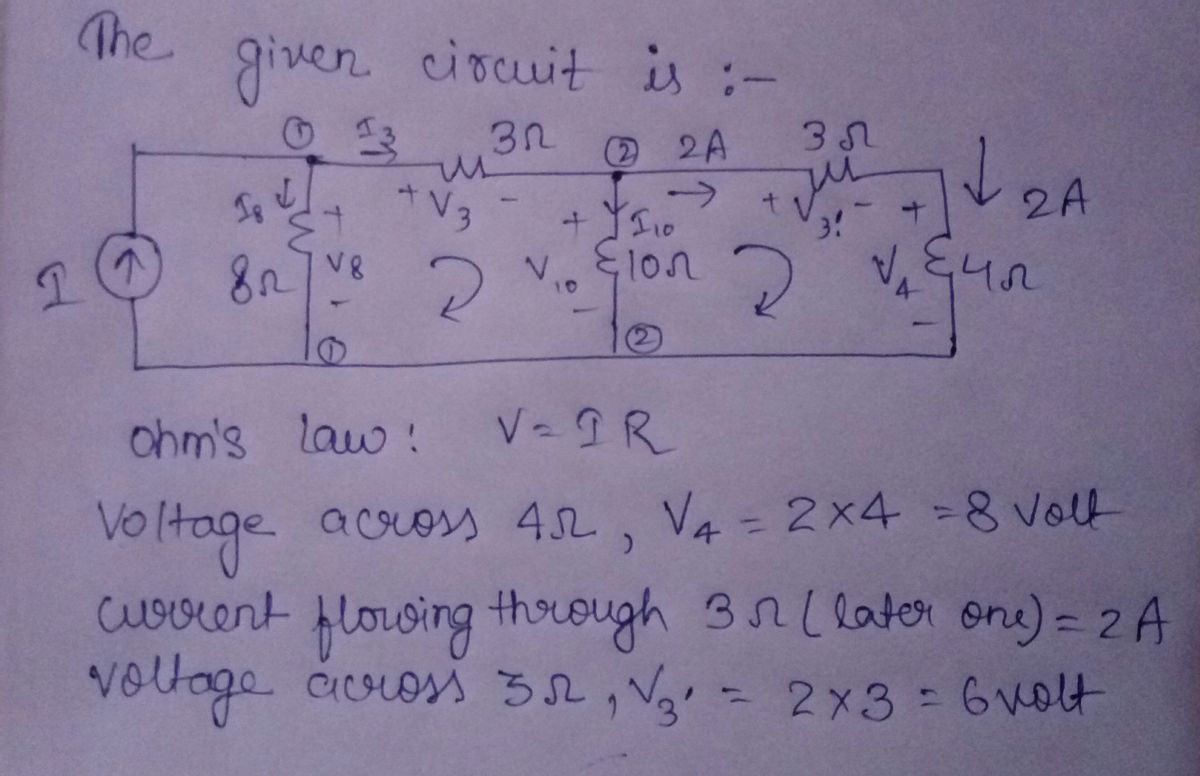 The given circuit is :-
① I3 → 3Ω ② 2A → 3Ω ↓ 2A
I8 ↓ + + V3 - + I10 + V3' - +
I 8Ω V8 V10 10Ω V4 4Ω
- - -
① ②
Ohm's law : V = IR
Voltage across 4Ω , V4 = 2×4 = 8 Volt
current flowing through 3Ω ( later one) = 2 A
voltage across 3Ω , V3' = 2×3 = 6 volt